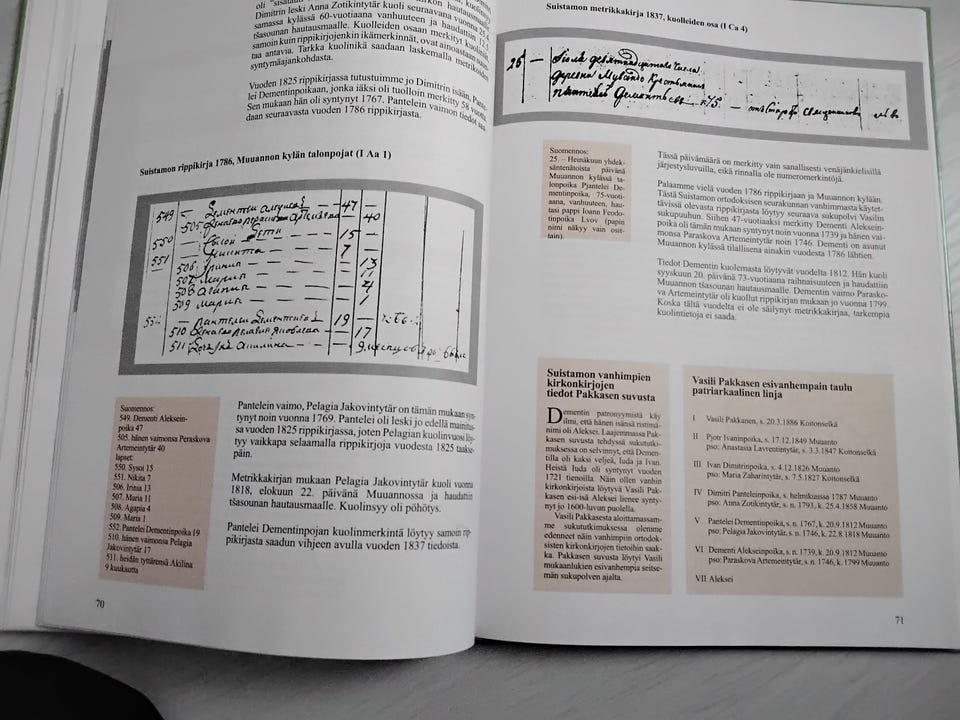 Dimitrin leski Anna Zotikintytär kuoli seuraavana vuonna 25.4.
samassa kylässä 60-vuotiaana vanhuuteen ja haudattiin 12.5
tšasounan hautausmaalle. Kuolleiden osaan merkityt kuoliniät
samoin kuin rippikirjojenkin ikämerkinnät, ovat ainoastaan suun-
taa antavia. Tarkka kuolinikä saadaan laskemalla metrikoiden
syntymäajankohdasta.
Vuoden 1825 rippikirjassa tutustuimme jo Dimitrin isään, Pante-
lei Dementinpoikaan, jonka iäksi oli tuolloin merkitty 58 vuotta
Sen mukaan hän oli syntynyt 1767. Pantelein vaimon tiedot saa-
daan seuraavasta vuoden 1786 rippikirjasta.
Suistamon rippikirja 1786, Muuannon kylän talonpojat (I Aa 1)
549 47
505 40
550 15
551 7
506 13
507 11
508 4
509 1
552 19
510 17
511 9
Suomennos:
549. Dementi Aleksein-
poika 47
505. hänen vaimonsa Peraskova
Artemeintytär 40
lapset:
550. Sysoi 15
551. Nikita 7
506. Irinia 13
507. Maria 11
508. Agapia 4
509. Maria 1
552. Pantelei Dementinpoika 19
510. hänen vaimonsa Pelagia
Jakovintytär 17
511. heidän tyttärensä Akilina
9 kuukautta
Pantelein vaimo, Pelagia Jakovintytär on tämän mukaan syn-
tynyt noin vuonna 1769. Pantelei oli leski jo edellä mainitus-
sa vuoden 1825 rippikirjassa, joten Pelagian kuolinvuosi löy-
tyy vaikkapa selaamalla rippikirjoja vuodesta 1825 taakse-
päin.
Metrikkakirjan mukaan Pelagia Jakovintytär kuoli vuonna
1818, elokuun 22. päivänä Muuannossa ja haudattiin
tšasounan hautausmaalle. Kuolinsyy oli pöhötys.
Pantelei Dementinpojan kuolinmerkintä löytyy samoin rip-
pikirjasta saadun vihjeen avulla vuoden 1837 tiedoista.
70
Suistamon metrikkakirja 1837, kuolleiden osa (I Ca 4)
Suomennos:
25. – Heinäkuun yhdek-
säntenätoista päivänä
Muuannon kylässä ta-
lonpoika Pjantelei De-
mentinpoika, 75-vuoti-
aana, vanhuuteen, hau-
tasi pappi Ioann Feodo-
tinpoika Lvov (papin
nimi näkyy vain osit-
tain).
Tässä päivämäärä on merkitty vain sanallisesti venäjänkielisillä
järjestysluvuilla, eikä rinnalla ole numeromerkintöjä.
Palaamme vielä vuoden 1786 rippikirjaan ja Muuannon kylään.
Tästä Suistamon ortodoksisen seurakunnan vanhimmasta käytet-
tävissä olevasta rippikirjasta löytyy seuraava sukupolvi Vasilin
sukupuuhun. Siihen 47-vuotiaaksi merkitty Dementi Aleksein-
poika oli tämän mukaan syntynyt noin vuonna 1739 ja hänen vai-
monsa Paraskova Artemeintytär noin 1746. Dementi on asunut
Muuannon kylässä tilallisena ainakin vuodesta 1786 lähtien.
Tiedot Dementin kuolemasta löytyvät vuodelta 1812. Hän kuoli
syyskuun 20. päivänä 73-vuotiaana raihnaisuuteen ja haudattiin
Muuannon tšasounan hautausmaalle. Dementin vaimo Parasko-
va Artemeintytär oli kuollut rippikirjan mukaan jo vuonna 1799.
Koska tältä vuodelta ei ole säilynyt metrikkakirjaa, tarkempia
kuolintietoja ei saada.
Suistamon vanhimpien
kirkonkirjojen
tiedot Pakkasen suvusta
Dementin patronyymistä käy
ilmi, että hänen isänsä ristimä-
nimi oli Aleksei. Laajemmassa Pak-
kasen suvusta tehdyssä sukututki-
muksessa on selvinnyt, että Demen-
tilla oli kaksi veljeä, Iuda ja Ivan.
Heistä Iuda oli syntynyt vuoden
1721 tienoilla. Näin ollen vanhin
kirkonkirjoista löytyvä Vasili Pak-
kasen esi-isä Aleksei lienee synty-
nyt jo 1600-luvun puolella.
Vasili Pakkasesta aloittamassam-
me sukututkimuksessa olemme
edenneet näin vanhimpien ortodok-
sisten kirkonkirjojen tietoihin saak-
ka. Pakkasen suvusta löytyi Vasili
mukaanlukien esivanhempia seitse-
män sukupolven ajalta.
Vasili Pakkasen esivanhempain taulu
patriarkaalinen linja
I Vasili Pakkanen, s. 20.3.1886 Koitonselkä
II Pjotr Ivaninpoika, s. 17.12.1849 Muuanto
pso: Anastasia Lavrentintytär, s. 3.3.1847 Koitonselkä
III Ivan Dimitrinpoika, s. 4.12.1826 Muuanto
pso: Maria Zaharintytär, s. 7.5.1827 Koitonselkä
IV Dimitri Panteleinpoika, s. helmikuussa 1787 Muuanto
pso: Anna Zotikintytär, s. 1793, k. 25.4.1858 Muuanto
V Pantelei Dementinpoika, s. n. 1767, k. 20.9.1812 Muuanto
pso: Pelagia Jakovintytär, s. n. 1746, k. 22.8.1818 Muuanto
VI Dementi Alekseinpoika, s. n. 1739, k. 20.9.1812 Muuanto
pso: Paraskova Artemeintytär, s. n. 1746, k. 1799 Muuanto
VII Aleksei
71